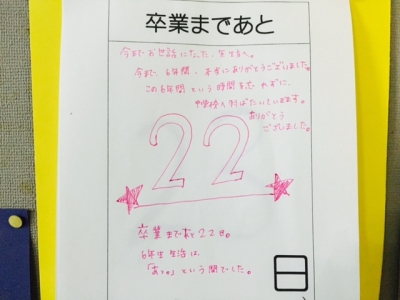 卒業まであと
今まで、お世話になった、先生方へ。
今まで、6年間、本当にありがとうございました。
この6年間という時間を忘れずに、
中学校へ行ばたいていきます。
ありがとう
ございました。
22
卒業まであと22日。
6年生生活は、
「あっ」という間でした。
日